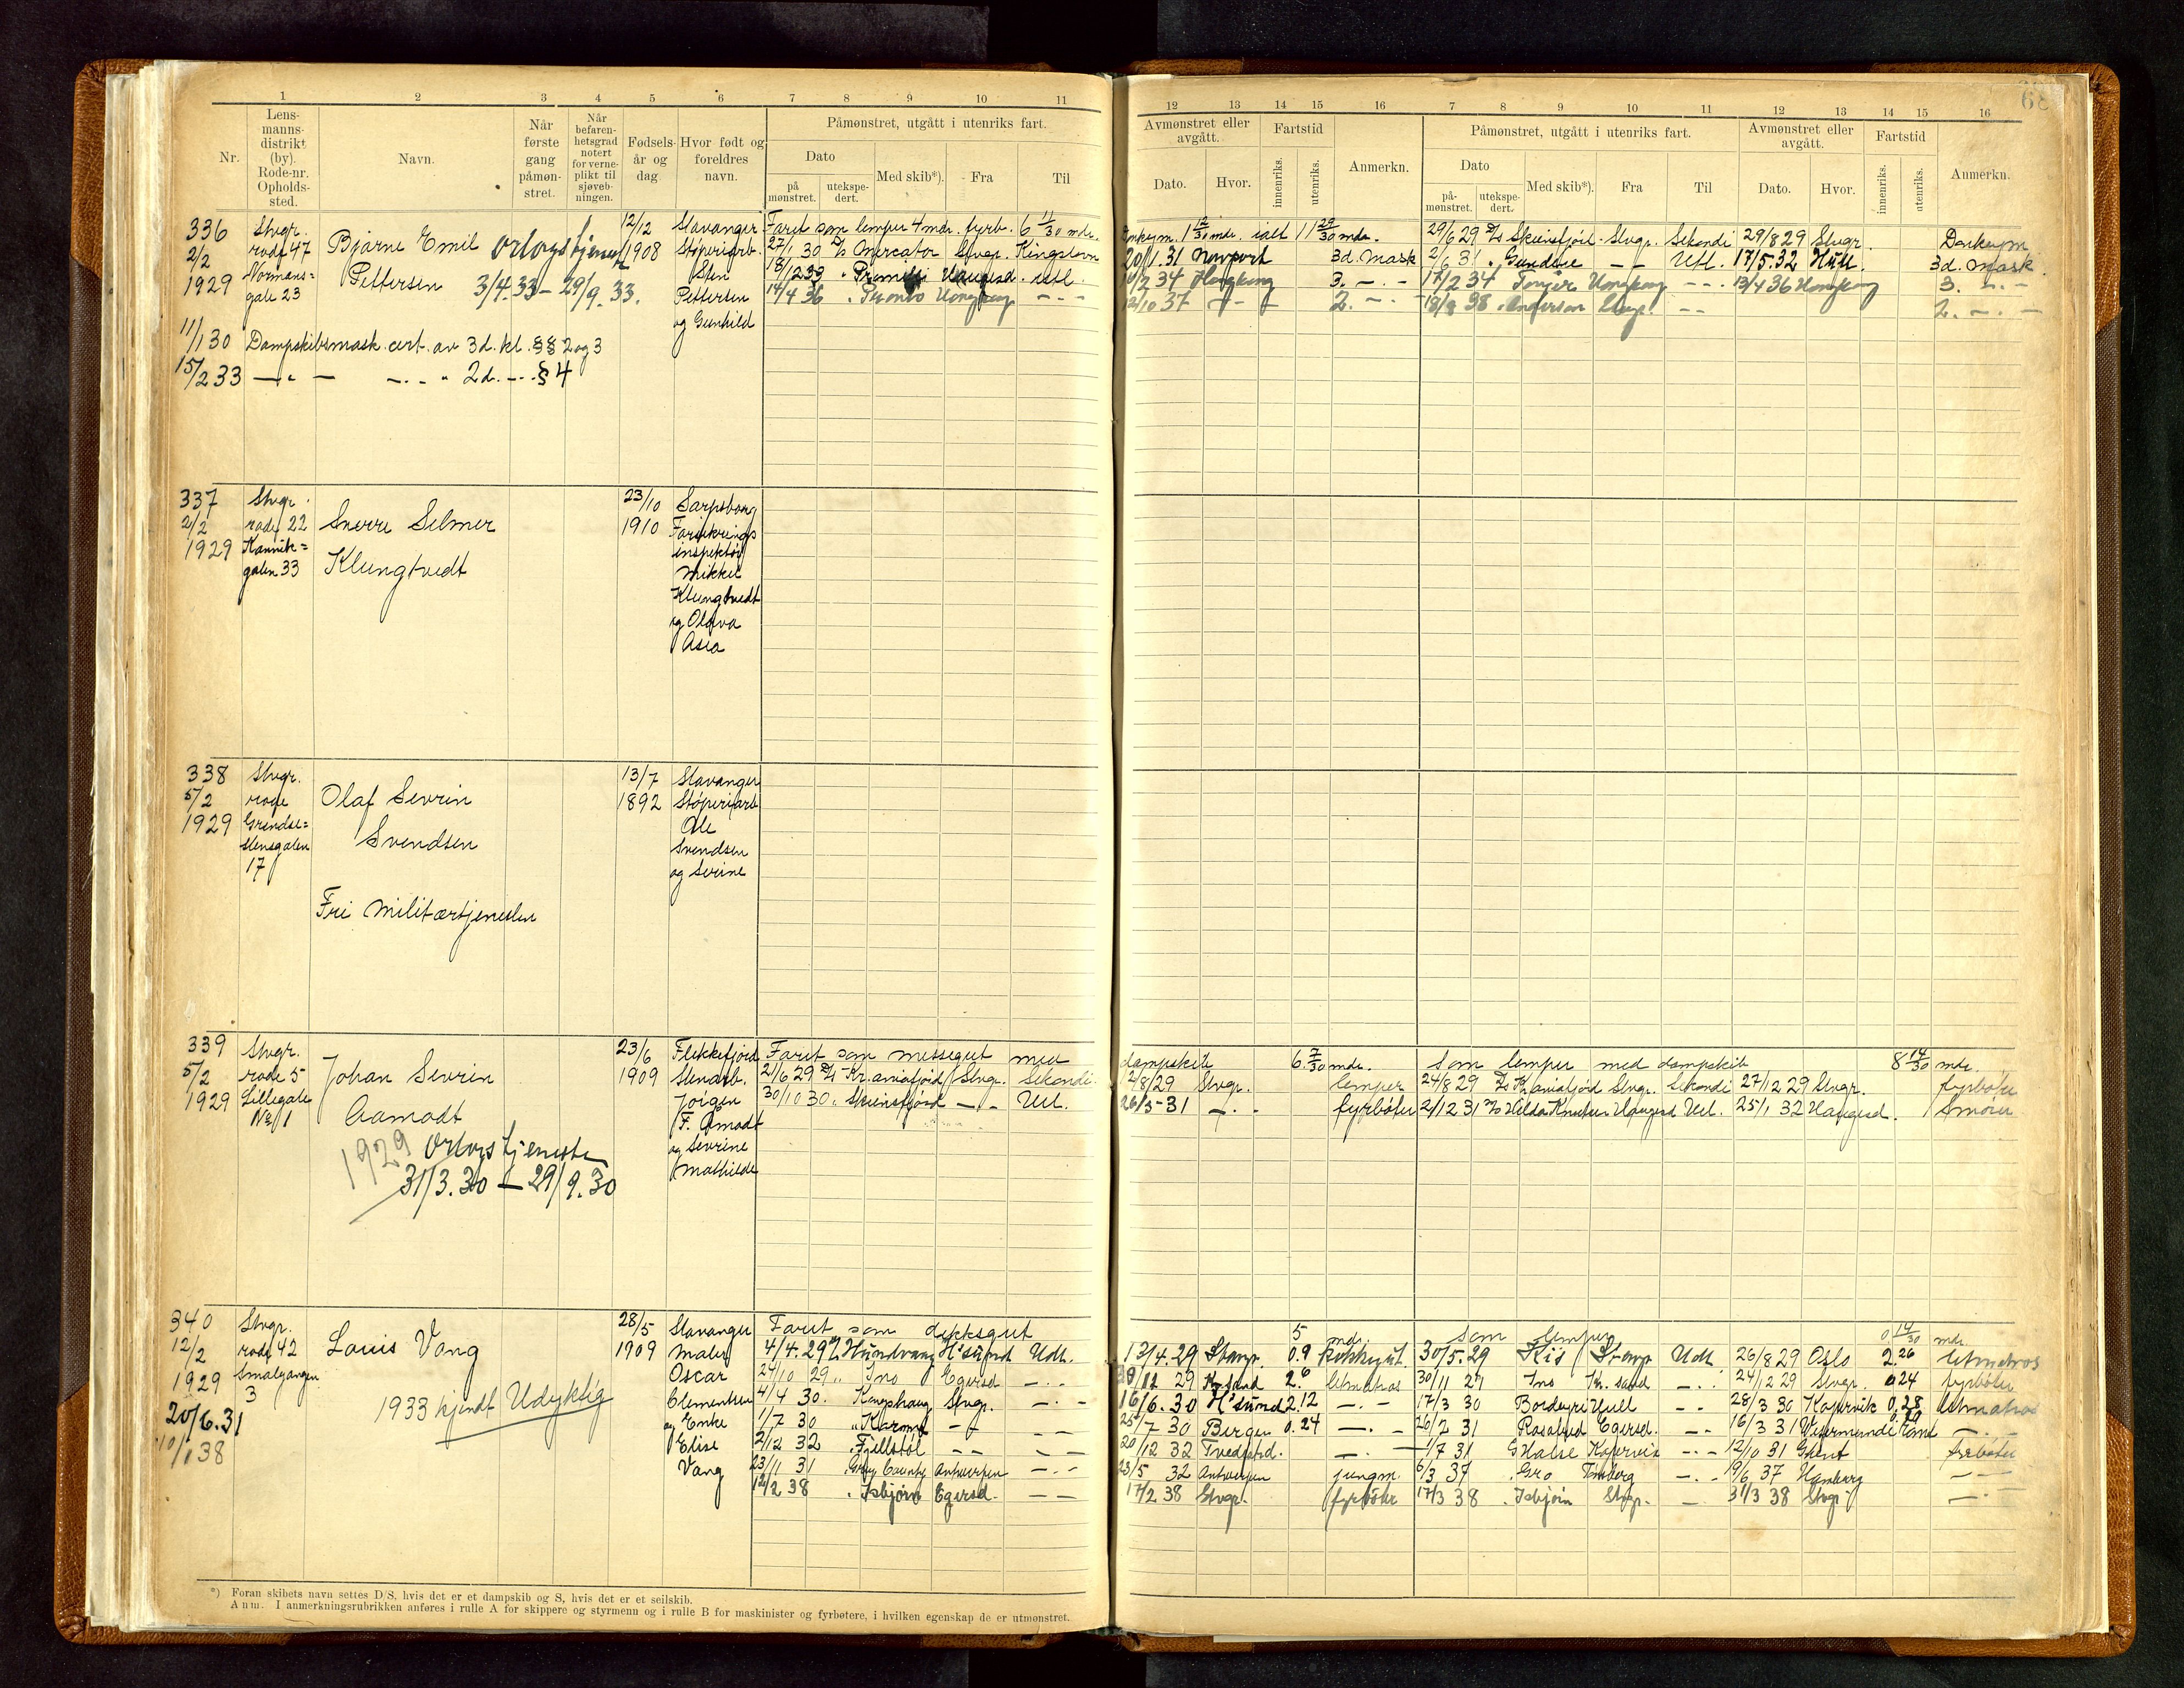 1 2 3 4 5 6 7 8 9 10 11
Nr.
Lens-
manns-
distrikt
(by).
Rode-nr.
Opholds-
sted.
Navn.
Når
første
gang
påmøn-
stret.
Når
befaren-
hetsgrad
notert
for verne-
plikt til
sjøveb-
ningen.
Fødsels-
år og
dag
Hvor født og
foreldres
navn.
Påmønstret, utgått i utenriks fart.
Dato
på
mønstret.
utekspe-
dert.
Med skib*).
Fra
Til
336
2/2
1929
Stvgr.
rode 47
Normans=
gate 23
Bjarne Emil
Pettersen
Orlogstjeneste
3/4.33 – 29/9.33.
12/12
1908
Stavanger
Støperiarb.
Sten
Pettersen
og Gunhild
Faret som lemper 4 mdr. fyrb. 6 11/30 mdr.
27/1 30 D/S Mercator Stvgr. Kingstown
18/2 33 " Haugesd. utl.
14/4 36 " Pronto Hongkong – " –
11/1 30 Dampskibsmask. cert. av 3d. kl. §§ 2 og 3
15/2 33 – " – – " – " 2d. – " – § 4
337
2/2
1929
Stvgr.
rode 22
Kannik=
gaten 33
Sverre Selmer
Klungtvedt
23/10
1910
Sarpsborg
Forsikrings
inspektør
Mikkel
Klungtvedt
og Olava
Asia
338
5/2
1929
Stvgr.
rode
Grendse=
stensgaten
17
Olaf Sevrin
Svendsen
Fri Militærtjenesten
13/7
1892
Stavanger
Støperiarb
Ole
Svendsen
og Serine
339
5/2
1929
Stvgr.
rode 5
Lillegate
No 1
Johan Sevrin
Aamodt
1929 Orlogstjeneste
31/3.30 – 29/9.30
23/6
1909
Flekkefjord
Stenarb.
Jørgen
F. Åmodt
og Sevrine
Mathilde
Faret som messegut med
21/6 29 D/S Kr.aniafjord Stvgr. Sekondi
30/10 30 " Skiensfjord – " – Utl.
340
12/2
1929
20/6.31
10/1 38
Stvgr.
rode 42
Smalgangen
3
Louis Vang
1933 kjendt Udyktig
28/5
1909
Stavanger
Maler
Oscar
Clementsen
og Enke
Elise
Vang
Faret som dekksgut
4/4.29 D/S Hundvaag H'sund Udl.
24/10 29 " Ino Egersd – " –
4/4 30. " Kongshaug Stvgr. – " –
1/7 30 " Karmt – " – – " –
2/12 32 " Fjellstøl – – – –
23/11 31 " Grey County Antwerpen – " –
12/2 38 " Isbjørn Egersd. – –
*) Foran skibets navn settes D/S, hvis det er et dampskib og S, hvis det er et seilskib.
Anm. I anmerkningsrubrikken anføres i rulle A for skippere og styrmenn og i rulle B for maskinister og fyrbøtere, i hvilken egenskap de er utmønstret.
12 13 14 15 16 7 8 9 10 11 12 13 14 15 16
Avmønstret eller
avgått.
Dato.
Hvor.
Fartstid
innenriks.
utenriks.
Anmerkn.
Påmønstret, utgått i utenriks fart.
Dato
på-
mønstret.
utekspe-
dert.
Med skib*).
Fra
Til
Avmønstret eller
avgått.
Dato.
Hvor.
Fartstid
innenriks.
utenriks.
Anmerkn.
Donkeym. 1 12/30 mdr. ialt 11 29/30 mdr. 29/6 29 D/S Skiensfjord Stvgr. Sekondi 29/8 29 Stvgr. Donkeym
20/1.31 Newport 3d. Mask 2/6 31 " Gundine – – Utl. 17/5.32 Hull. 3d. Mask.
2 34 Hongkong 3. – " – 17/2 34 Hongkong – " – 13/4 36 Hongkong 3. – " –
12/10 37 – " – 2. – " – 19/8 38 Stvgr. – – 2. – " –
dampskib 6 7/30 mdr. Som lemper med dampskib 8 14/30 mdr.
12/8/29 Stvgr. lemper 24/8 29 D/S Kr.aniafjord Stvgr. Sekondi 27/12 29 Stvgr. fyrbøter
26/3-31 – " – fyrbøter 2/12 31 D/S Hilda Knudsen Haugesd Utl. 25/1 32 Haugesd. Smører
5 mdr. Som lemper 0 14/30 mdr
13/4.29 Stavgr. 0.9 kokkgut. 30/5.29 Kis Stavgr Udl. 26/8 29 Oslo 2.26 letmatros
12 29 Kr.sand 2.6 letmatros 30/11 29 Ino Kr. sand – " – 24/12 29 Stvgr. 0.24 fyrbøter
16/6.30 H'sund 2.12 – " – 17/3 30 Hull – " – 28/3 30 Kopervik 0.28 letmatros
25/7 30 Bergen 0.24 – " – 26/2 31 Rosalyd Egersd. – " – 16/3 31 Wesermünde 0.20 – " –
20/12 32 Tvedestd. – " – 1/7 31 Kopervik – " – 12/10 31 Ghent fyrbøter
23/5 32 Antwerpen jungm. 6/3 37 " Gro Tønsberg – " – 19/6 37 Hamburg – " –
17/2 38 Stvgr. fyrbøter 17/3 38 " Isbjørn Stvgr. – 31/3 38 Stvgr – " –